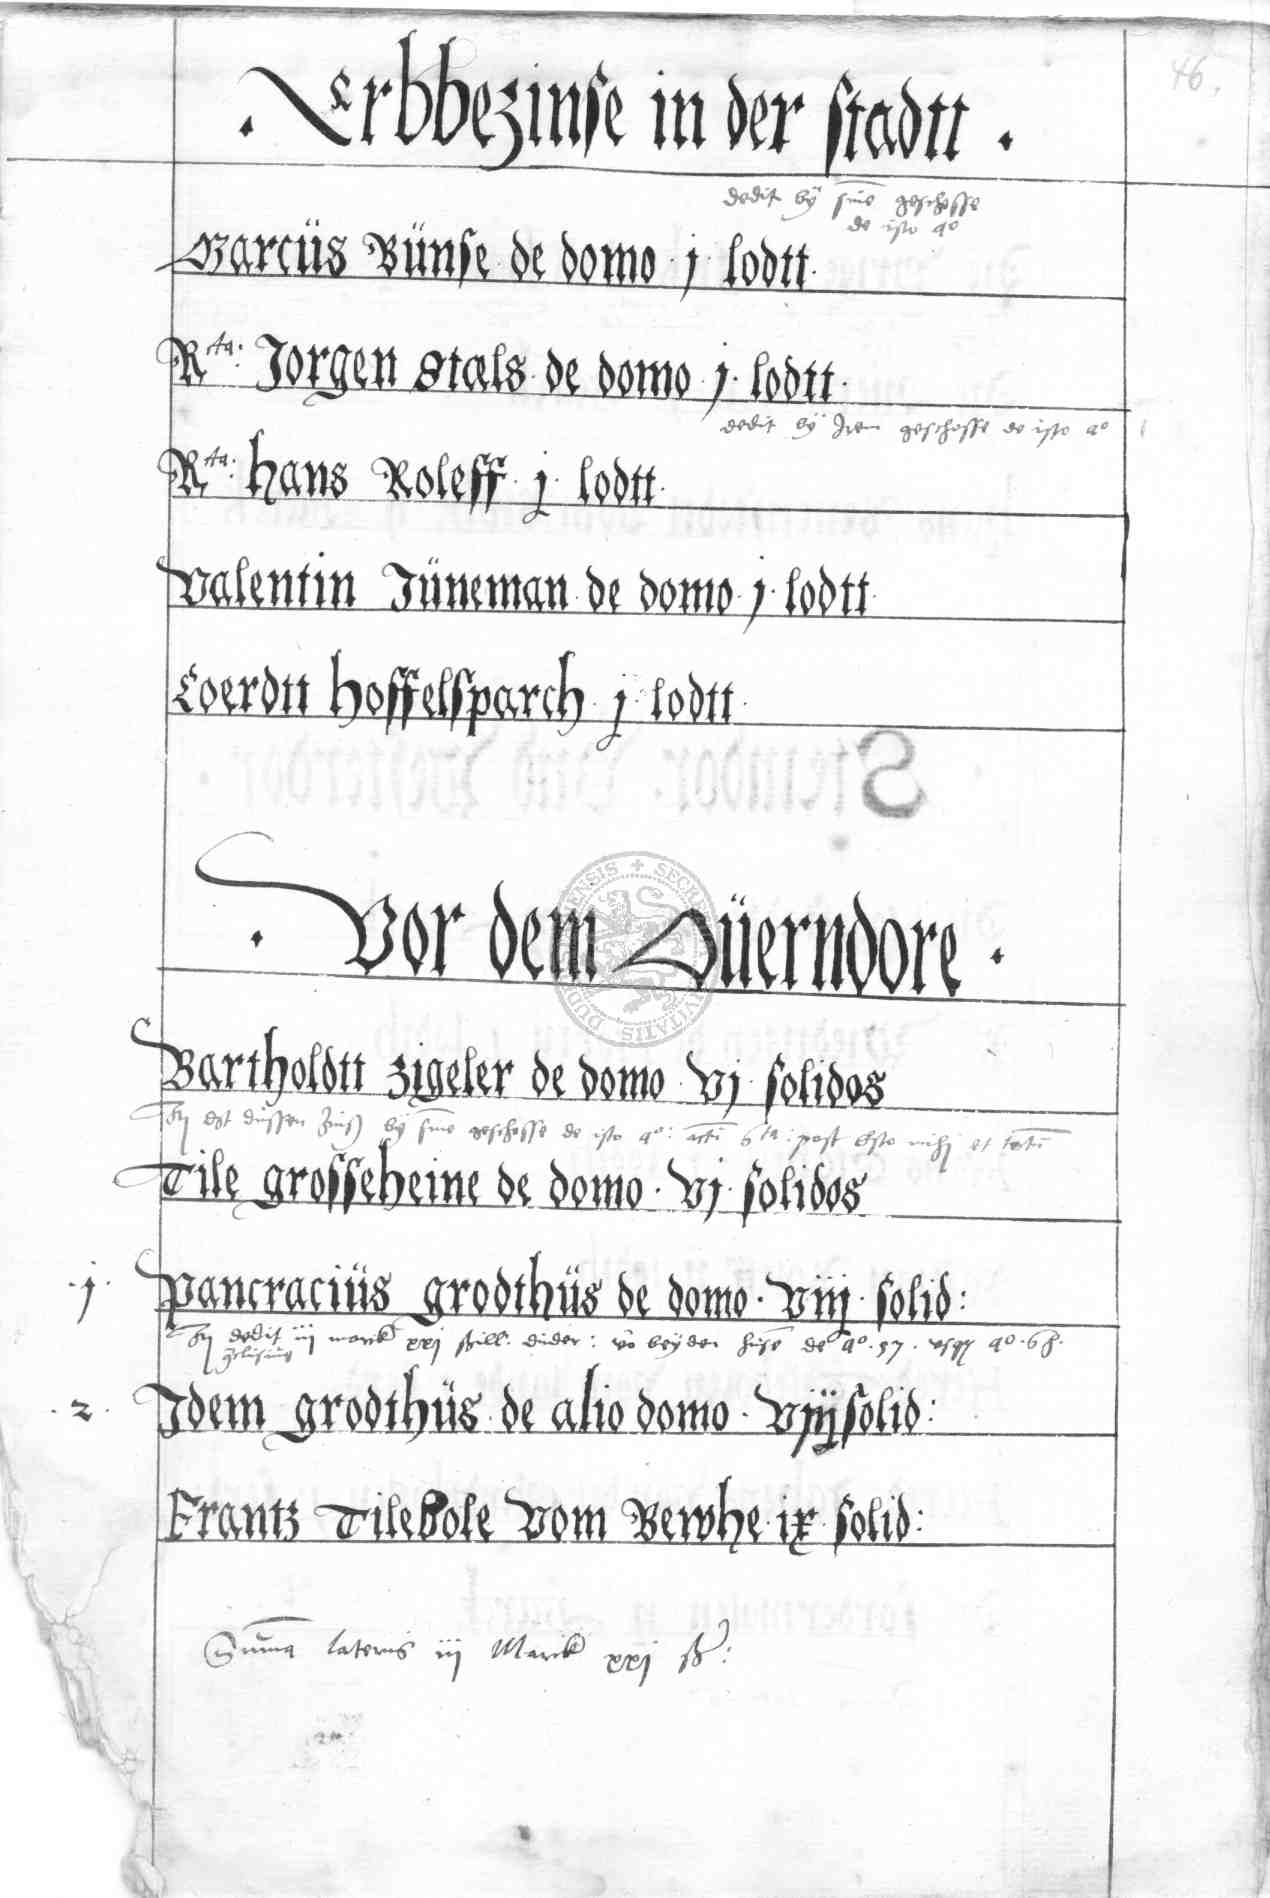 46.
. Erbbezinse in der stadtt .
dedit bÿ sine geschosse
de isto ao
Marcüs Bünse de domo j lodtt.
Rta: Jorgen Stæls de domo j lodtt.
dedit bÿ geschosse de isto ao
Rta: hans Roleff j lodtt.
Valentin Jüneman de domo j lodtt.
Coerdtt hoffelsparch j lodtt.
. Vor dem Düerndore .
Bartholdtt zigeler de domo vj solidos
düssen bÿ sine geschosse de isto ao: post et
Tile grosseheine de domo vj solidos
.j. Pancraciüs grodthüs de domo viij solid:
dedit iij marck xxj schill: duder: beyden huse de ao 57. usqz ao
.2. Idem grodthüs de alio domo viij solid:
Frantz Tilebole vom Bewhe ix solid:
Summa lateris iij Marck xxj ß: